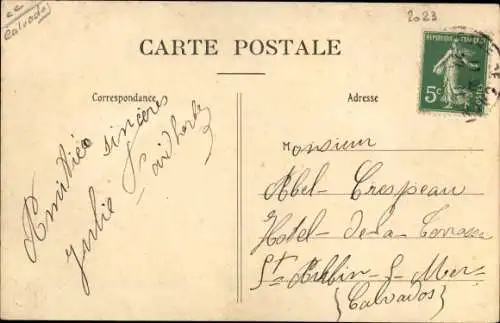 Calvados
2023
CARTE POSTALE
Correspondance
Adresse
REPUBLIQUE FRANCAISE
5c
POSTES
Amitiés sincères
Julie
Monsieur
Abel Crespeau
Hotel de la Terrasse
St Aubin-S-Mer
(Calvados)